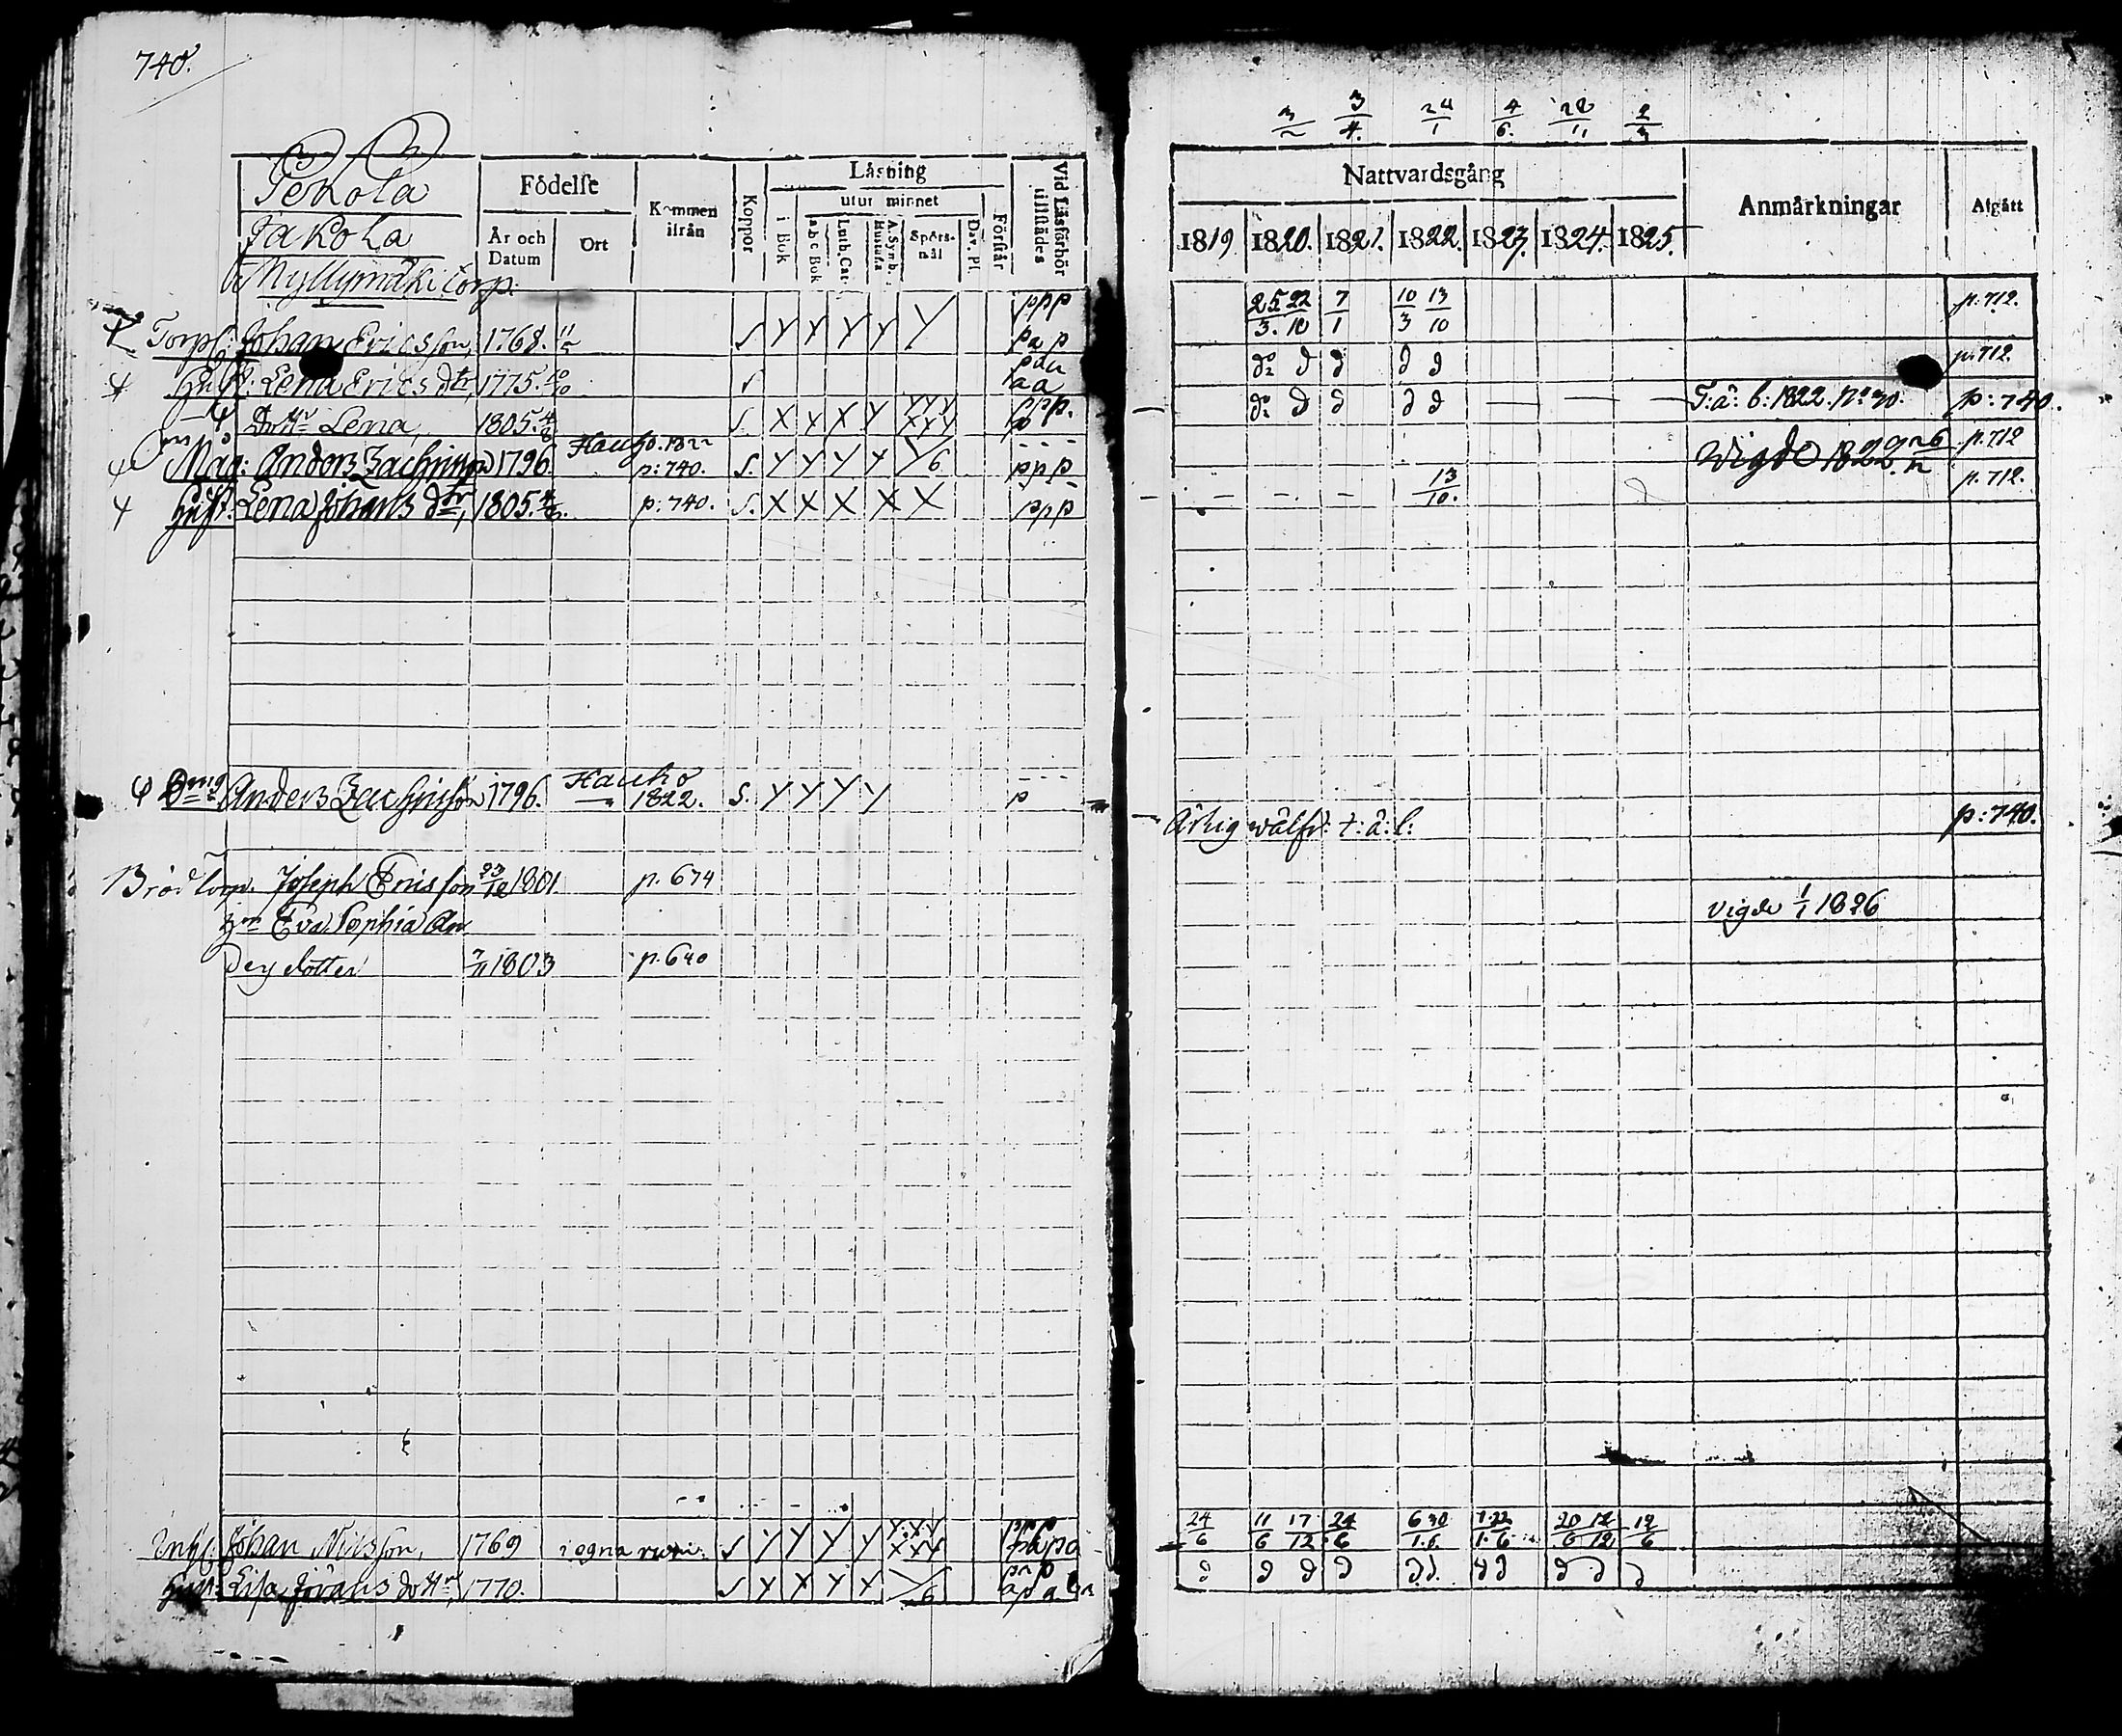 740.
Pekola
Jakola
Myllymäki torp.
Födelse
År och Datum
Ort
Kommen ifrån
Koppor
Läsning
i Bok
utur minnet
a b c Bok
Luth. Cat.
A. Symb.
Hustafla
Spörs-mål
Dav. Ps.
Förstår
Vid Läsförhör tillstädes
Torp: Johan Ericsson, 1768. S Y Y Y Y Y ppp pap
Hust: Lena Ericsdtr, 1775. aa
Dottr Lena, 1805. S. X X X Y YYY XXX ppp.
Måg: Anders Zachrisson 1796. Hauho. 1822 p: 740. S. Y Y Y Y ppp
Hust: Lena Johans dtr, 1805. p: 740. S. X X X X X ppp
Anders Zachrisson 1796. Hauho 1822. S. Y Y Y Y p
Bröd Torp. Joseph Ericsson 1801. p. 674
Eva Sophia An
ders dotter 1803 p. 640
Inhs: Johan Nilsson, 1769 i egna rum. S Y Y Y Y YYY XXX ppp papa
Hust: Lisa Johans dottr, 1770. S Y X X X
3/2 3/4. 24/1 4/6. 28/11 2/3
Nattvardsgång
Anmärkningar
Afgått
1819. 1820. 1821. 1822. 1823. 1824. 1825.
25/3. 22/10 7/1 10/3 13/10 p: 712.
do d d d d p: 712.
do d d d d T: â: b: 1822. No 30. p: 740.
Vigde 1822 p. 712
13/10. p. 712.
Ärlig wälfr: t: â: l: p: 740.
Vigde 1/1 1826
24/6 11/6 17/12 24/6 6/1 30/6 1/1 22/6 20/6 12/12 12/6
d d d d d d d d d d d